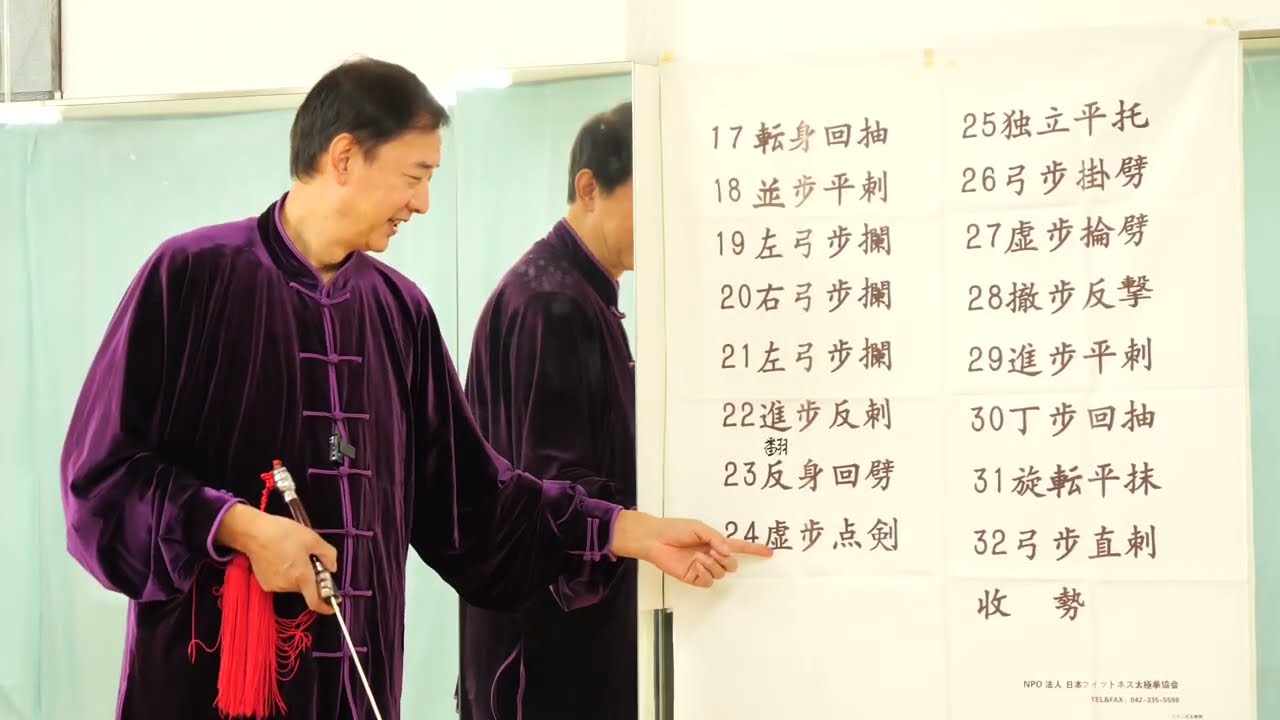 17転身回抽
18並步平刺
19左弓步攔
20右弓步攔
21左弓步攔
22進步反刺
翻
23反身回劈
24虚步点剣
25独立平托
26弓步掛劈
27虚步掄劈
28撤步反撃
29進步平刺
30丁步回抽
31旋転平抹
32弓步直刺
收 勢
NPO 法人 日本フィットネス太極拳協会
TEL&FAX: 042-335-5598